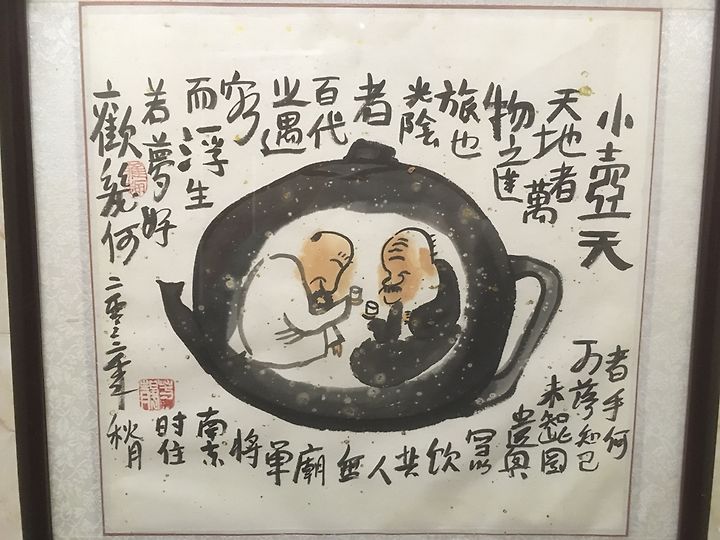 小壺天
天地者
萬
物之逆
旅也
光陰
者
百代
之過
客
而浮生
若夢好
歡幾何
二零二二年
秋月
時住
南京
將
軍
廟
無
人
共
飲
寫以
遣興
未知此圖
可落知己
者手何